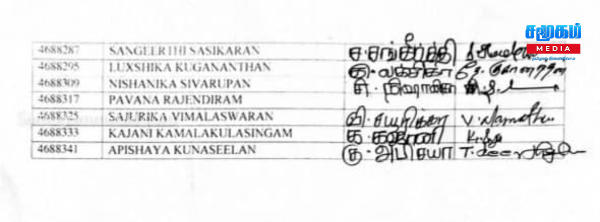 சமூகம்
MEDIA
4688287 SANGEERTHI SASIKARAN ச. சங்கீர்த்தி
4688295 LUXSHIKA KUGANANTHAN கு. லக்சிகா
4688309 NISHANIKA SIVARUPAN சி. நிஷானிகா
4688317 PAVANA RAJENDIRAM
4688325 SAJURIKA VIMALASWARAN வி. சயூரிகா
4688333 KAJANI KAMALAKULASINGAM க. கஜானி
4688341 APISHAYA KUNASEELAN கு. அபிசயா